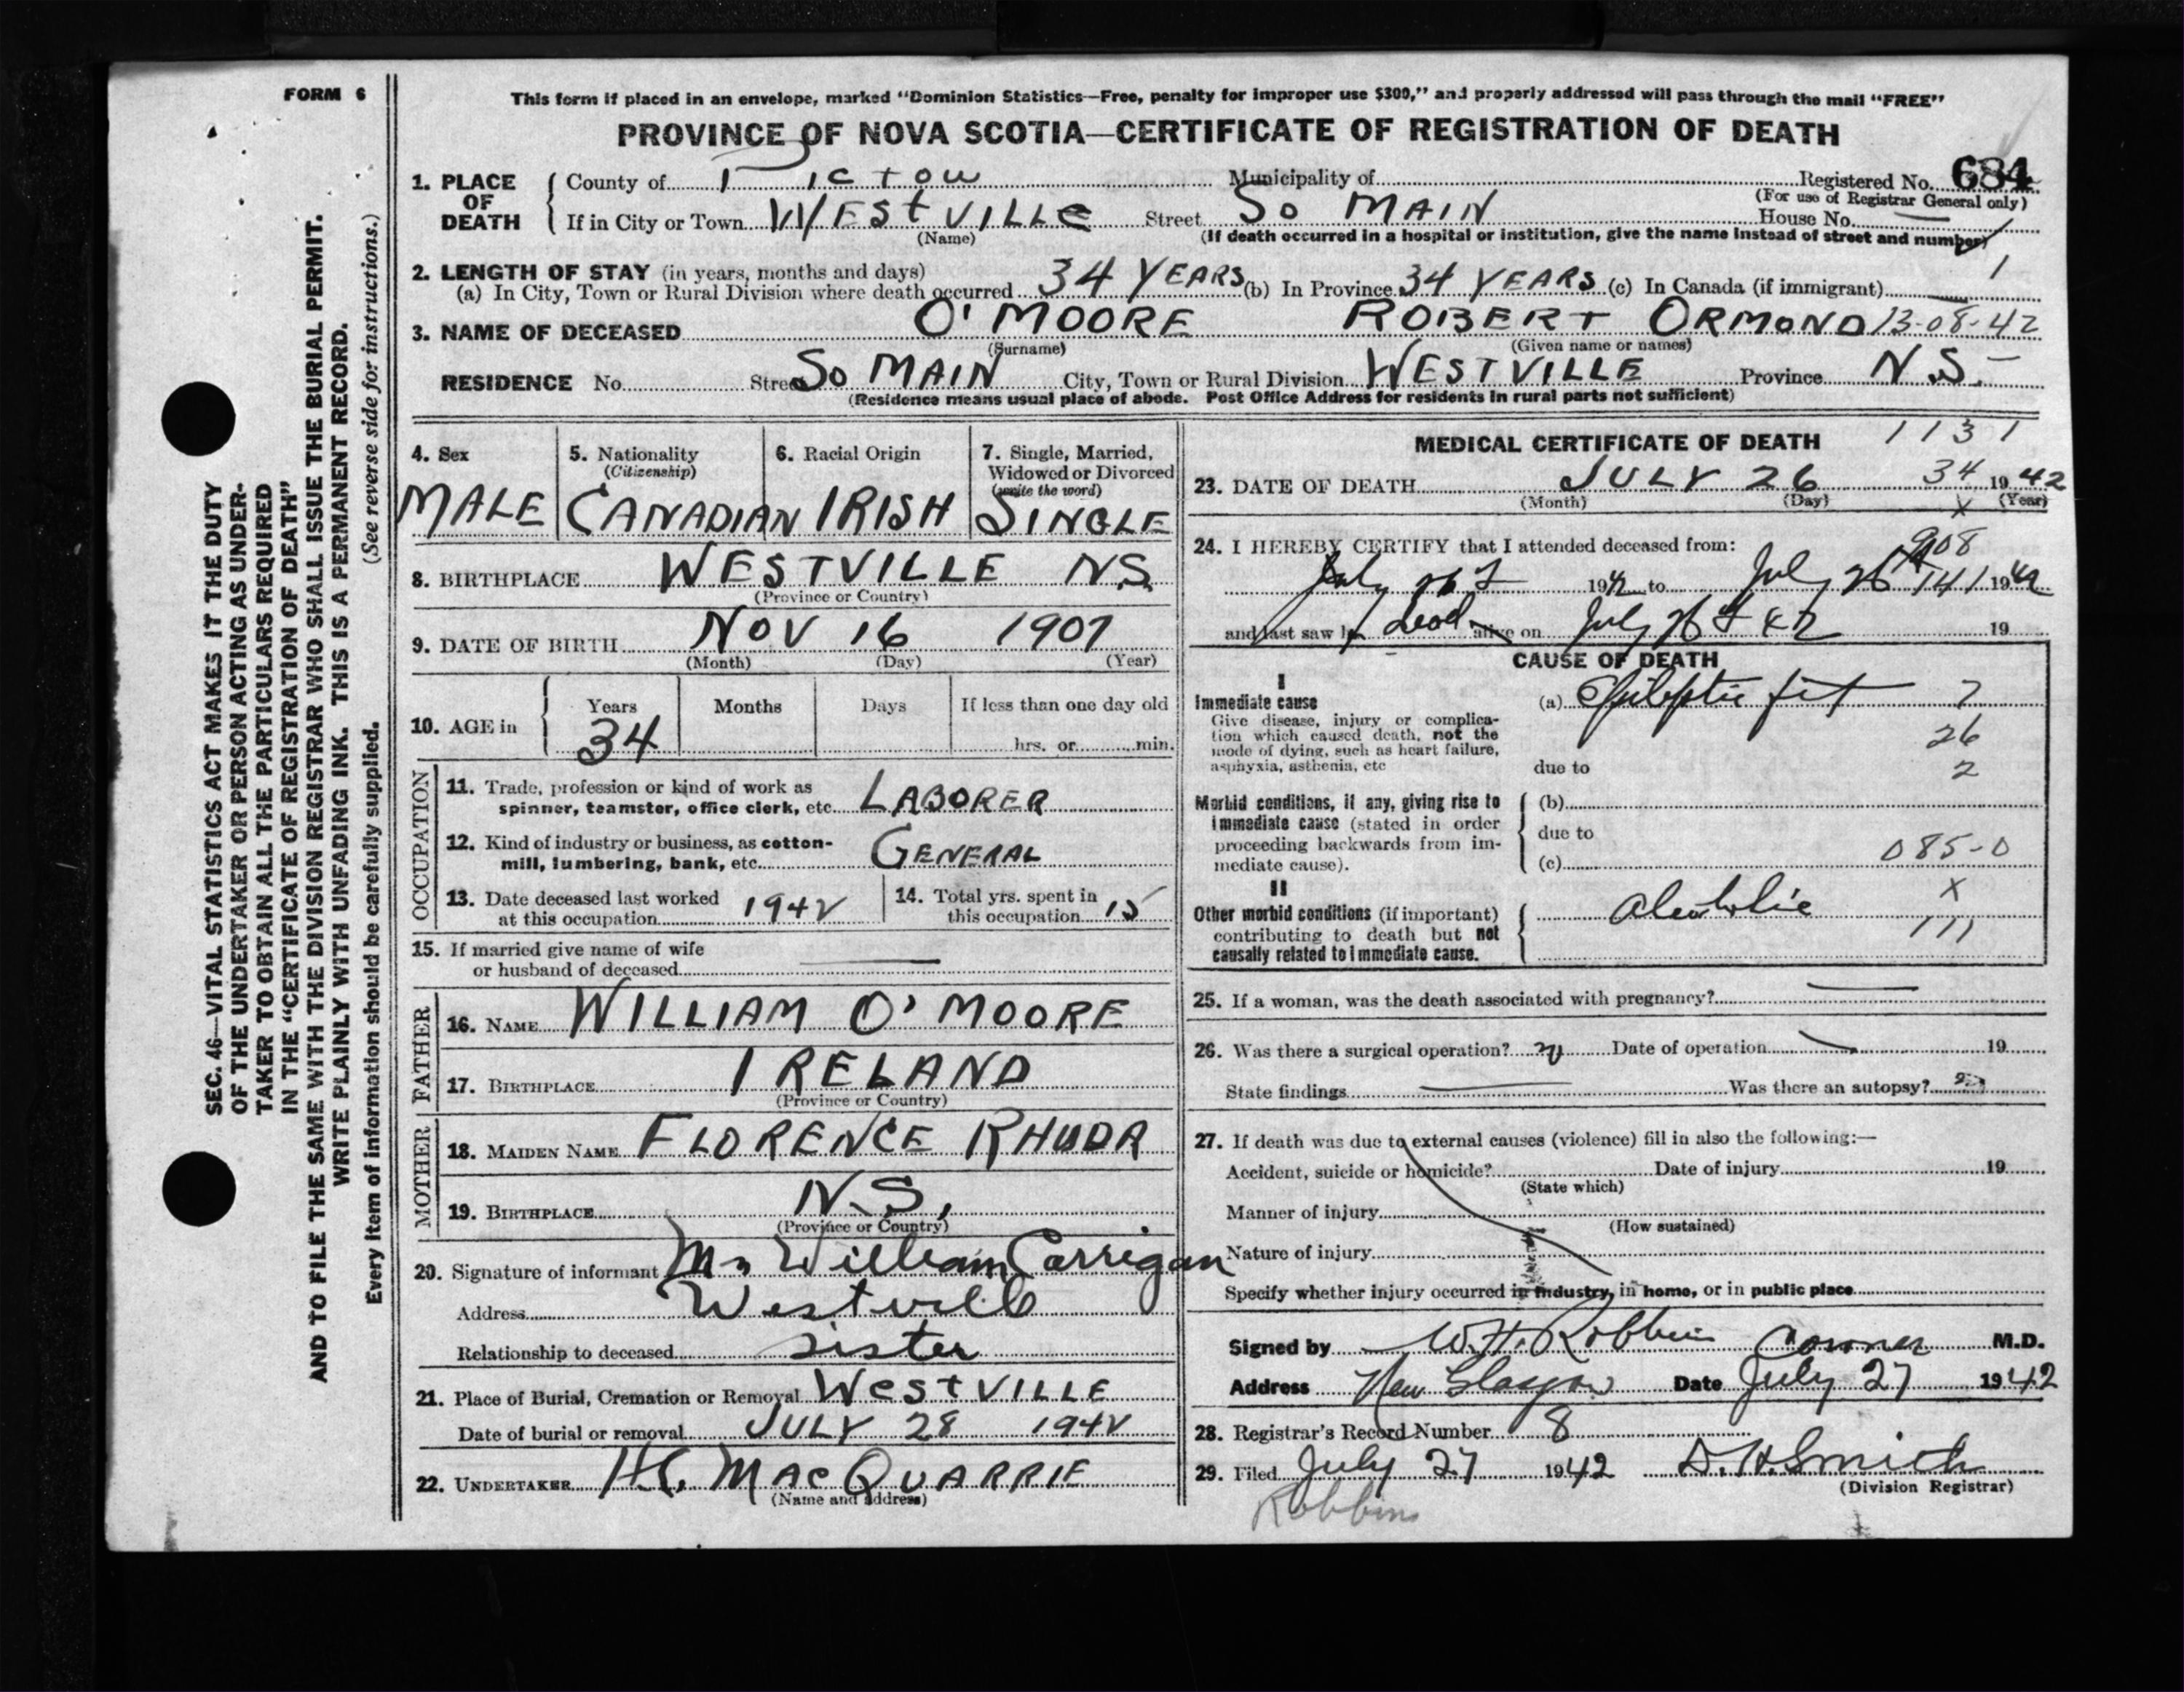 FORM 6
This form if placed in an envelope, marked "Dominion Statistics—Free, penalty for improper use $300," and properly addressed will pass through the mail "FREE"
PROVINCE OF NOVA SCOTIA—CERTIFICATE OF REGISTRATION OF DEATH
SEC. 46—VITAL STATISTICS ACT MAKES IT THE DUTY
OF THE UNDERTAKER OR PERSON ACTING AS UNDER-
TAKER TO OBTAIN ALL THE PARTICULARS REQUIRED
IN THE "CERTIFICATE OF REGISTRATION OF DEATH"
AND TO FILE THE SAME WITH THE DIVISION REGISTRAR WHO SHALL ISSUE THE BURIAL PERMIT.
WRITE PLAINLY WITH UNFADING INK. THIS IS A PERMANENT RECORD.
Every item of information should be carefully supplied. (See reverse side for instructions.)
1. PLACE OF DEATH County of Pictou Municipality of Registered No. 684
(For use of Registrar General only)
If in City or Town WESTVILLE Street So MAIN House No. —
(Name) (If death occurred in a hospital or institution, give the name instead of street and number)
2. LENGTH OF STAY (in years, months and days) 1
(a) In City, Town or Rural Division where death occurred 34 YEARS (b) In Province 34 YEARS (c) In Canada (if immigrant) —
3. NAME OF DECEASED O'MOORE ROBERT ORMOND 13-08-42
(Surname) (Given name or names)
RESIDENCE No. Street So MAIN City, Town or Rural Division WESTVILLE Province N.S.
(Residence means usual place of abode. Post Office Address for residents in rural parts not sufficient)
4. Sex 5. Nationality (Citizenship) 6. Racial Origin 7. Single, Married, Widowed or Divorced (write the word)
MALE CANADIAN IRISH SINGLE
8. BIRTHPLACE WESTVILLE N.S.
(Province or Country)
9. DATE OF BIRTH NOV 16 1907
(Month) (Day) (Year)
10. AGE in Years Months Days If less than one day old
34 hrs. or min.
OCCUPATION
11. Trade, profession or kind of work as
spinner, teamster, office clerk, etc. LABORER
12. Kind of industry or business, as cotton-
mill, lumbering, bank, etc. GENERAL
13. Date deceased last worked at this occupation 1942 14. Total yrs. spent in this occupation 15
15. If married give name of wife
or husband of deceased —
FATHER
16. NAME WILLIAM O'MOORE
17. BIRTHPLACE IRELAND
(Province or Country)
MOTHER
18. MAIDEN NAME FLORENCE RHUDA
19. BIRTHPLACE N.S.
(Province or Country)
20. Signature of informant Mrs William Carrigan
Address Westville
Relationship to deceased sister
21. Place of Burial, Cremation or Removal WESTVILLE
Date of burial or removal JULY 28 1942
22. UNDERTAKER H.C. MACQUARRIE
(Name and address)
MEDICAL CERTIFICATE OF DEATH 1131
23. DATE OF DEATH JULY 26 34 1942
(Month) (Day) X (Year)
24. I HEREBY CERTIFY that I attended deceased from: 908
July 26 1942 to July 26 141 1942
and last saw h dead alive on July 26 42 19
CAUSE OF DEATH
I
Immediate cause
Give disease, injury or complica-
tion which caused death, not the
mode of dying, such as heart failure,
asphyxia, asthenia, etc
(a) Epileptic fit 7
26
due to 2
Morbid conditions, if any, giving rise to
immediate cause (stated in order
proceeding backwards from im-
mediate cause).
(b)
due to
(c) 085-0
II
Other morbid conditions (if important)
contributing to death but not
causally related to immediate cause.
Alcoholic X
111
25. If a woman, was the death associated with pregnancy? —
26. Was there a surgical operation? Date of operation — 19
State findings — Was there an autopsy?
27. If death was due to external causes (violence) fill in also the following:—
Accident, suicide or homicide? Date of injury 19
(State which)
Manner of injury
(How sustained)
Nature of injury
Specify whether injury occurred in industry, in home, or in public place
Signed by W.H. Robbins Coroner M.D.
Address New Glasgow Date July 27 1942
28. Registrar's Record Number 8
29. Filed July 27 1942 D.H. Smith
(Division Registrar)
Robbins